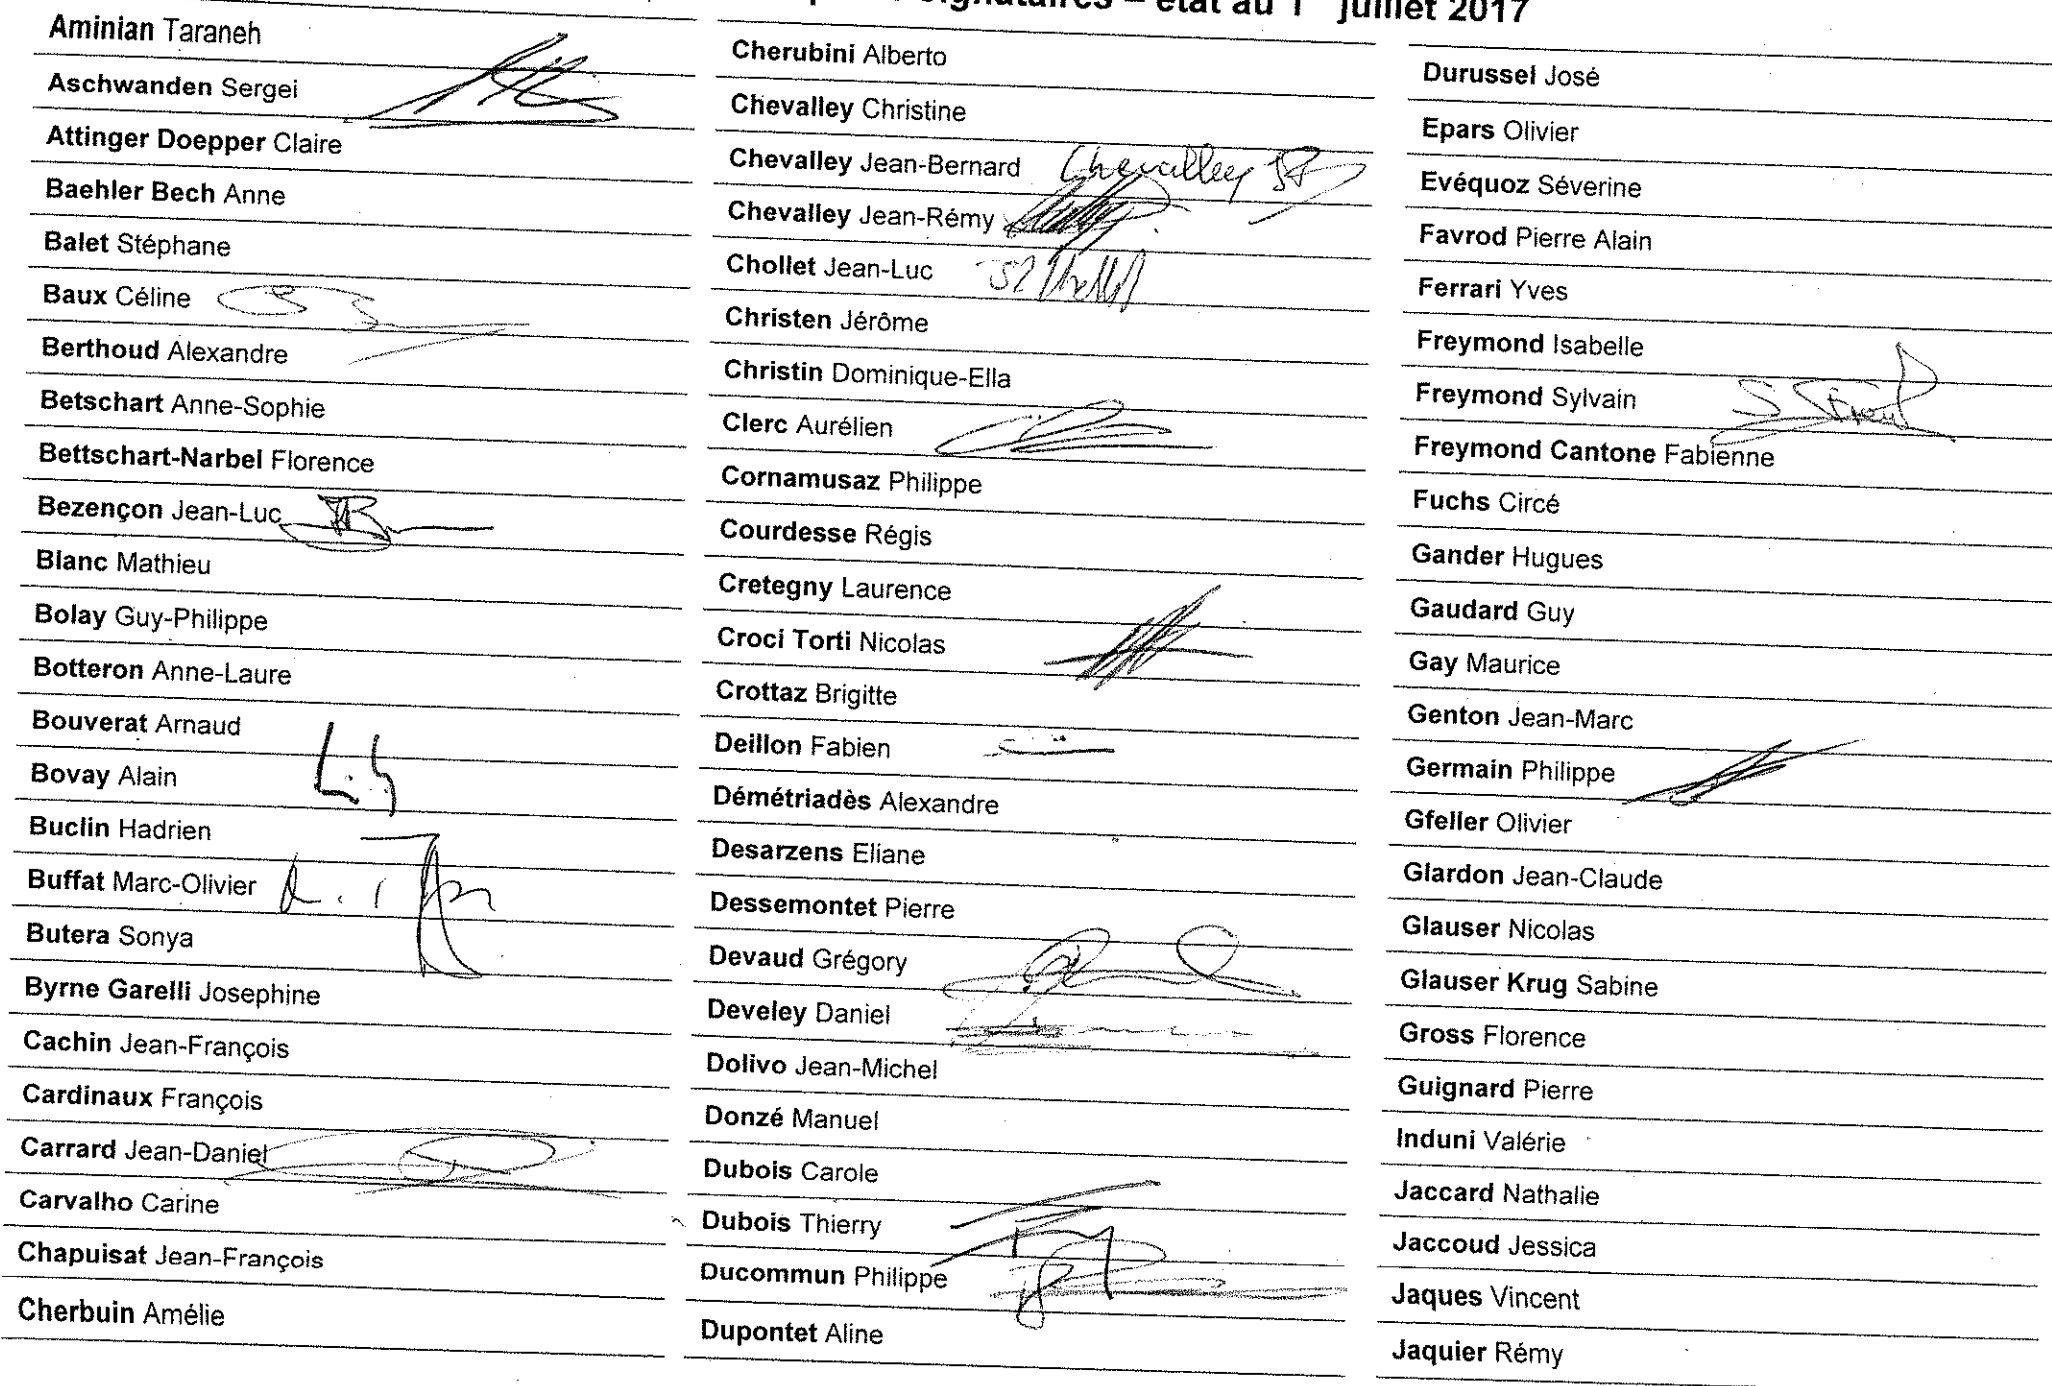 signataires – état au 1 juillet 2017
Aminian Taraneh
Aschwanden Sergei
Attinger Doepper Claire
Baehler Bech Anne
Balet Stéphane
Baux Céline
Berthoud Alexandre
Betschart Anne-Sophie
Bettschart-Narbel Florence
Bezençon Jean-Luc
Blanc Mathieu
Bolay Guy-Philippe
Botteron Anne-Laure
Bouverat Arnaud
Bovay Alain
Buclin Hadrien
Buffat Marc-Olivier
Butera Sonya
Byrne Garelli Josephine
Cachin Jean-François
Cardinaux François
Carrard Jean-Daniel
Carvalho Carine
Chapuisat Jean-François
Cherbuin Amélie
Cherubini Alberto
Chevalley Christine
Chevalley Jean-Bernard Chevalley
Chevalley Jean-Rémy
Chollet Jean-Luc
Christen Jérôme
Christin Dominique-Ella
Clerc Aurélien
Cornamusaz Philippe
Courdesse Régis
Cretegny Laurence
Croci Torti Nicolas
Crottaz Brigitte
Deillon Fabien
Démétriadès Alexandre
Desarzens Eliane
Dessemontet Pierre
Devaud Grégory
Develey Daniel
Dolivo Jean-Michel
Donzé Manuel
Dubois Carole
Dubois Thierry
Ducommun Philippe
Dupontet Aline
Durussel José
Epars Olivier
Evéquoz Séverine
Favrod Pierre Alain
Ferrari Yves
Freymond Isabelle
Freymond Sylvain
Freymond Cantone Fabienne
Fuchs Circé
Gander Hugues
Gaudard Guy
Gay Maurice
Genton Jean-Marc
Germain Philippe
Gfeller Olivier
Glardon Jean-Claude
Glauser Nicolas
Glauser Krug Sabine
Gross Florence
Guignard Pierre
Induni Valérie
Jaccard Nathalie
Jaccoud Jessica
Jaques Vincent
Jaquier Rémy